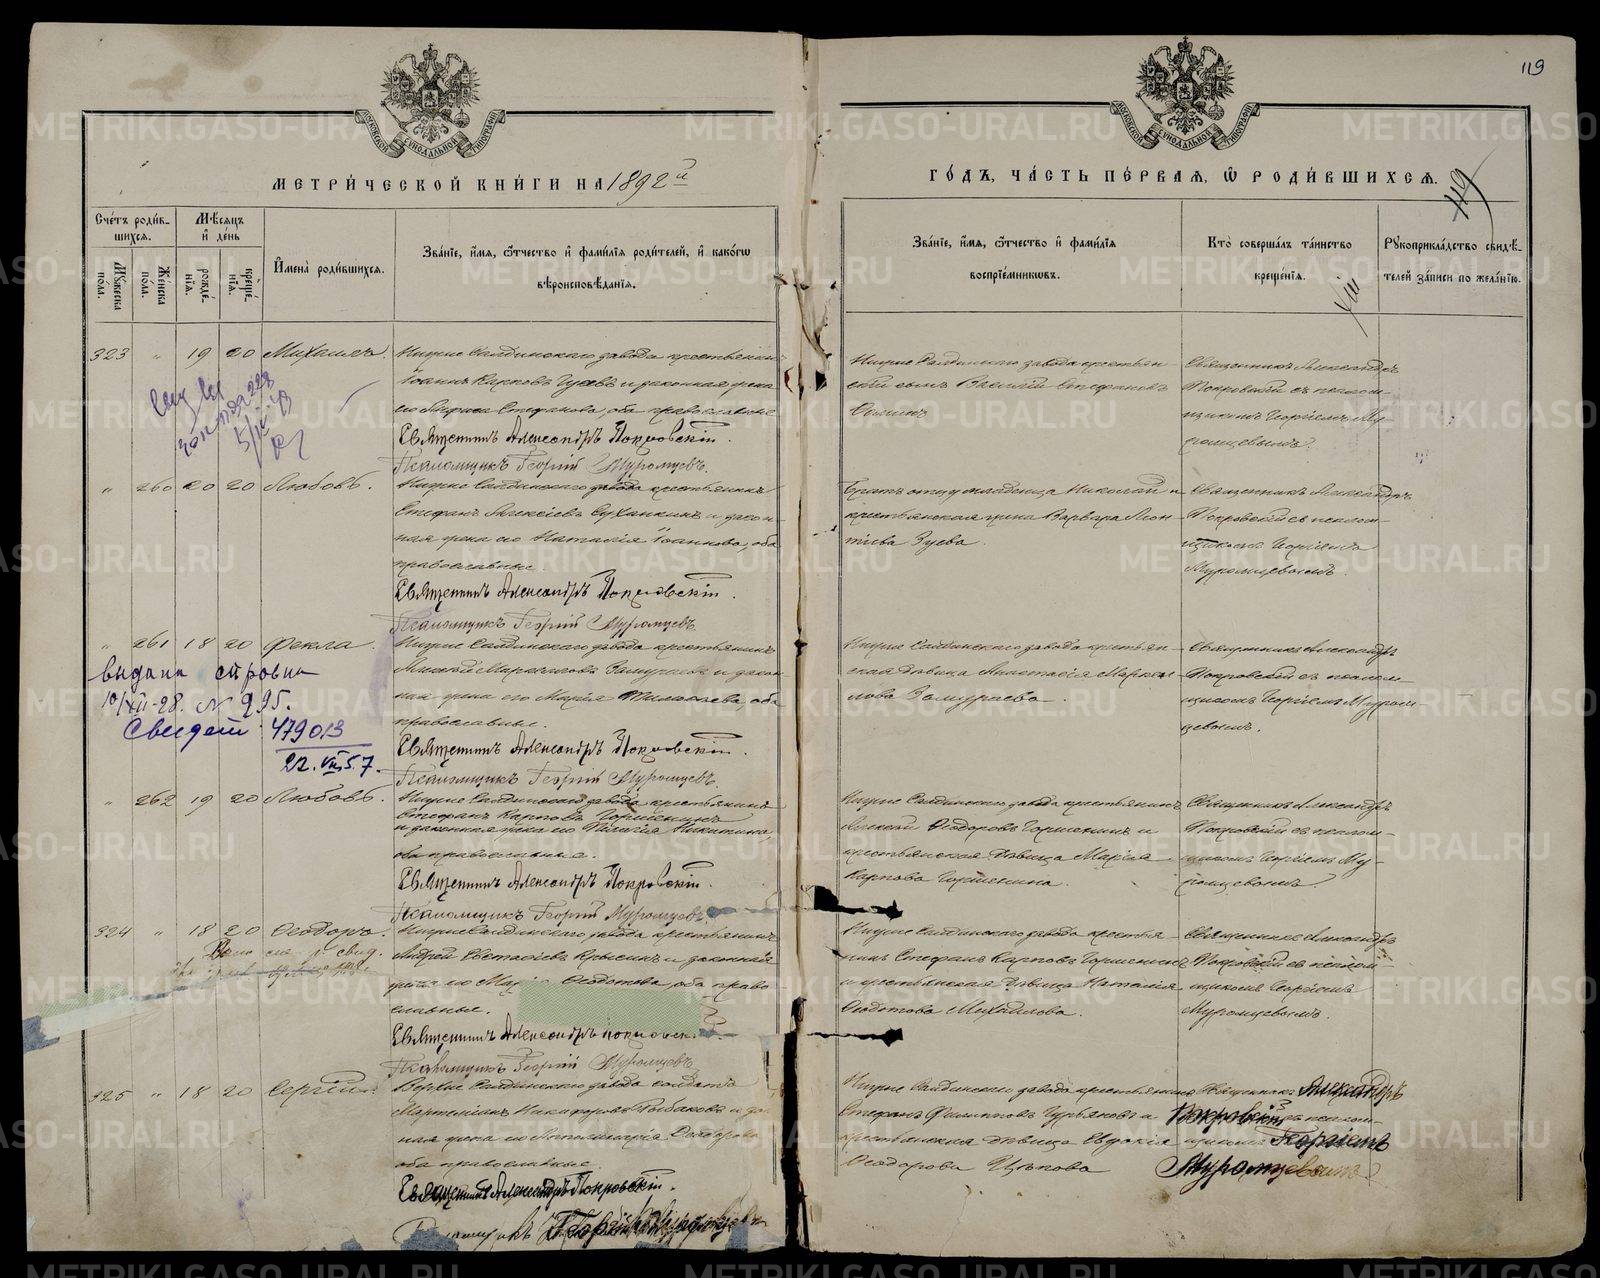 119
119
МЕТРИ́ЧЕСКОЙ КНИ́ГИ НА 1892й
ГО́ДЪ, ЧА́СТЬ ПЕ́РВАЯ, Ѿ РОДИ́ВШИХСЯ.
МОСКОВСКОЙ СѴНОДАЛЬНОЙ ТИПОГРАФІИ
МОСКОВСКОЙ СѴНОДАЛЬНОЙ ТИПОГРАФІИ
Сче́тъ роди́в-
шихся.
Му́жеска по́ла.
Же́нска по́ла.
Мѣ́сяцъ
и҆ де́нь
рожде́-
нїя.
креще́-
нїя.
И҆мена̀ роди́вшихся.
Зва́нїе, и҆́мя, ѻ҆́тчество и҆ фами́лїя роди́телей, и҆ како́гѡ
вѣроисповѣ́данїя.
Зва́нїе, и҆́мя, ѻ҆́тчество и҆ фами́лїя
воспрїе́мниковъ.
Кто̀ соверша́лъ та́инство
креще́нїя.
Рꙋкоприкла́дство свидѣ́-
телей за́писи по жела́нїю.
323 " 19 20 Михаилъ.
Нижне Салдинскаго завода крестьянинъ
Іоаннъ Карповъ Гусевъ и законная жена
его Стефанова, оба православные
Священникъ Александръ Покровскій.
Псаломщикъ Георгій Муромцевъ.
Нижне Салдинскаго завода крестьян-
скій сынъ Василій Стефановъ
Священникъ Александръ
Покровскій съ псалом-
щикомъ Георгіемъ Му-
ромцевымъ.
" 260 20 20 Любовь.
Нижне Салдинскаго завода крестьянинъ
Стефанъ Алексіевъ Суханкинъ и закон-
ная жена его Наталія Іоаннова, оба
православные.
Священникъ Александръ Покровскій.
Псаломщикъ Георгій Муромцевъ.
Братъ отцу младенца Николай и
крестьянская жена Варвара Леон-
тіева Зуева.
Священникъ Александръ
Покровскій съ псалом-
щикомъ Георгіемъ
Муромцевымъ.
" 261 18 20 Фекла.
выдана
10/XII-28. № 295.
Свидет. 479013
22.VIII.57.
Нижне Салдинскаго завода крестьянинъ
Замураевъ и закон-
ная жена его Марія оба
православные.
Священникъ Александръ Покровскій.
Псаломщикъ Георгій Муромцевъ.
Нижне Салдинскаго завода крестьян-
ская дѣвица Анастасія Маркел-
лова Замураева.
Священникъ Александръ
Покровскій съ псалом-
щикомъ Георгіемъ Муром-
цевымъ.
" 262 19 20 Любовь.
Нижне Салдинскаго завода крестьянинъ
Стефанъ Карповъ Горшенинъ
и законная жена его Пелагія Никитина
оба православные.
Священникъ Александръ Покровскій.
Псаломщикъ Георгій Муромцевъ.
Нижне Салдинскаго завода крестьянинъ
Алексій Ѳеодоровъ Горшенинъ и
крестьянская дѣвица Марія
Карпова Горшенина.
Священникъ Александръ
Покровскій съ псалом-
щикомъ Георгіемъ Му-
ромцевымъ.
324 " 18 20 Ѳеодоръ.
Нижне Салдинскаго завода крестьянинъ
Андрей Евстафіевъ Крысинъ и законная
жена его Ѳедотова, оба право-
славные.
Священникъ Александръ Покровскій.
Псаломщикъ Георгій Муромцевъ.
Нижне Салдинскаго завода крестья-
нинъ Стефанъ Карповъ Горшенинъ
и крестьянская дѣвица Наталія
Ѳедотова Михайлова.
Священникъ Александръ
Покровскій съ псалом-
щикомъ Георгіемъ
Муромцевымъ.
325 " 18 20 Сергій.
Верхне Салдинскаго завода солдатъ
Никифоровъ Рыбаковъ и закон-
ная жена его Аполлинарія Ѳеодорова
оба православные
Священникъ Александръ Покровскій.
Псаломщикъ Георгій Муромцевъ
Нижне Салдинскаго завода крестьянинъ
Стефанъ Филипповъ Гурьяновъ и
крестьянская дѣвица Евдокія
Ѳеодорова Цѣпова
Священникъ Александръ
Покровскій съ псалом-
щикомъ Георгіемъ
Муромцевымъ
METRIKI.GASO-URAL.RU